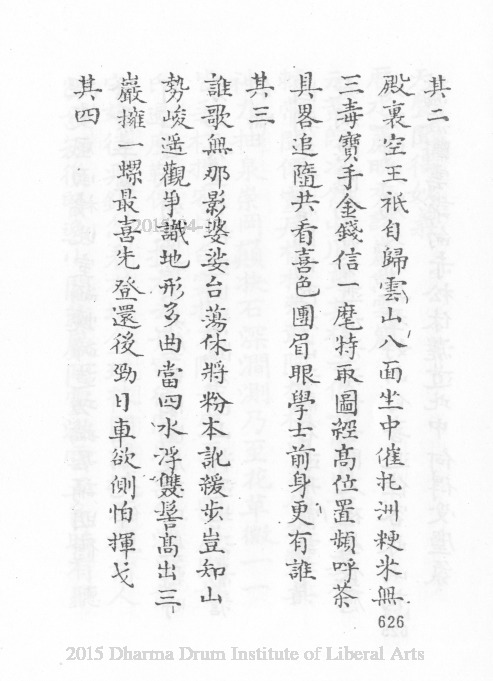 其二
殿裏空王祇自歸雲山八面坐中催托洲粳米無
三毒寶手金錢信一麾特取圖經高位置頻呼茶
具畧追隨共看喜色團眉眼學士前身更有誰
其三
誰歌無那影婆娑台蕩休將粉本訛緩步豈知山
勢峻遥觀爭識地形多曲當四水浮雙髻高出三
巖擁一螺最喜先登還後勁日車欲側怕揮戈
其四
626
2015 Dharma Drum Institute of Liberal Arts